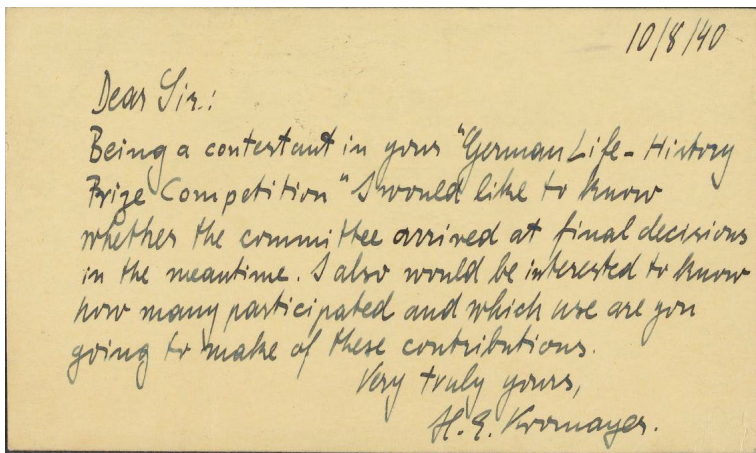 10/8/40
Dear Sir.:
Being a contestant in your "German Life-History
Prize Competition" I would like to know
whether the committee arrived at final decisions
in the meantime. I also would be interested to know
how many participated and which use are you
going to make of these contributions.
Very truly yours,
H. E. Kromayer.